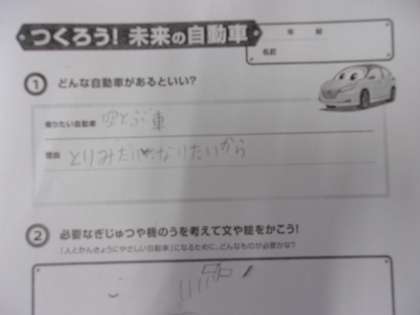 つくろう！未来の自動車
年 組
名前
1 どんな自動車があるといい？
乗りたい自動車 空とぶ車
理由 とりみたいになりたいから
2 必要なぎじゅつや機のうを考えて文や絵をかこう！
「人とかんきょうにやさしい自動車」になるために、どんなものが必要かな？